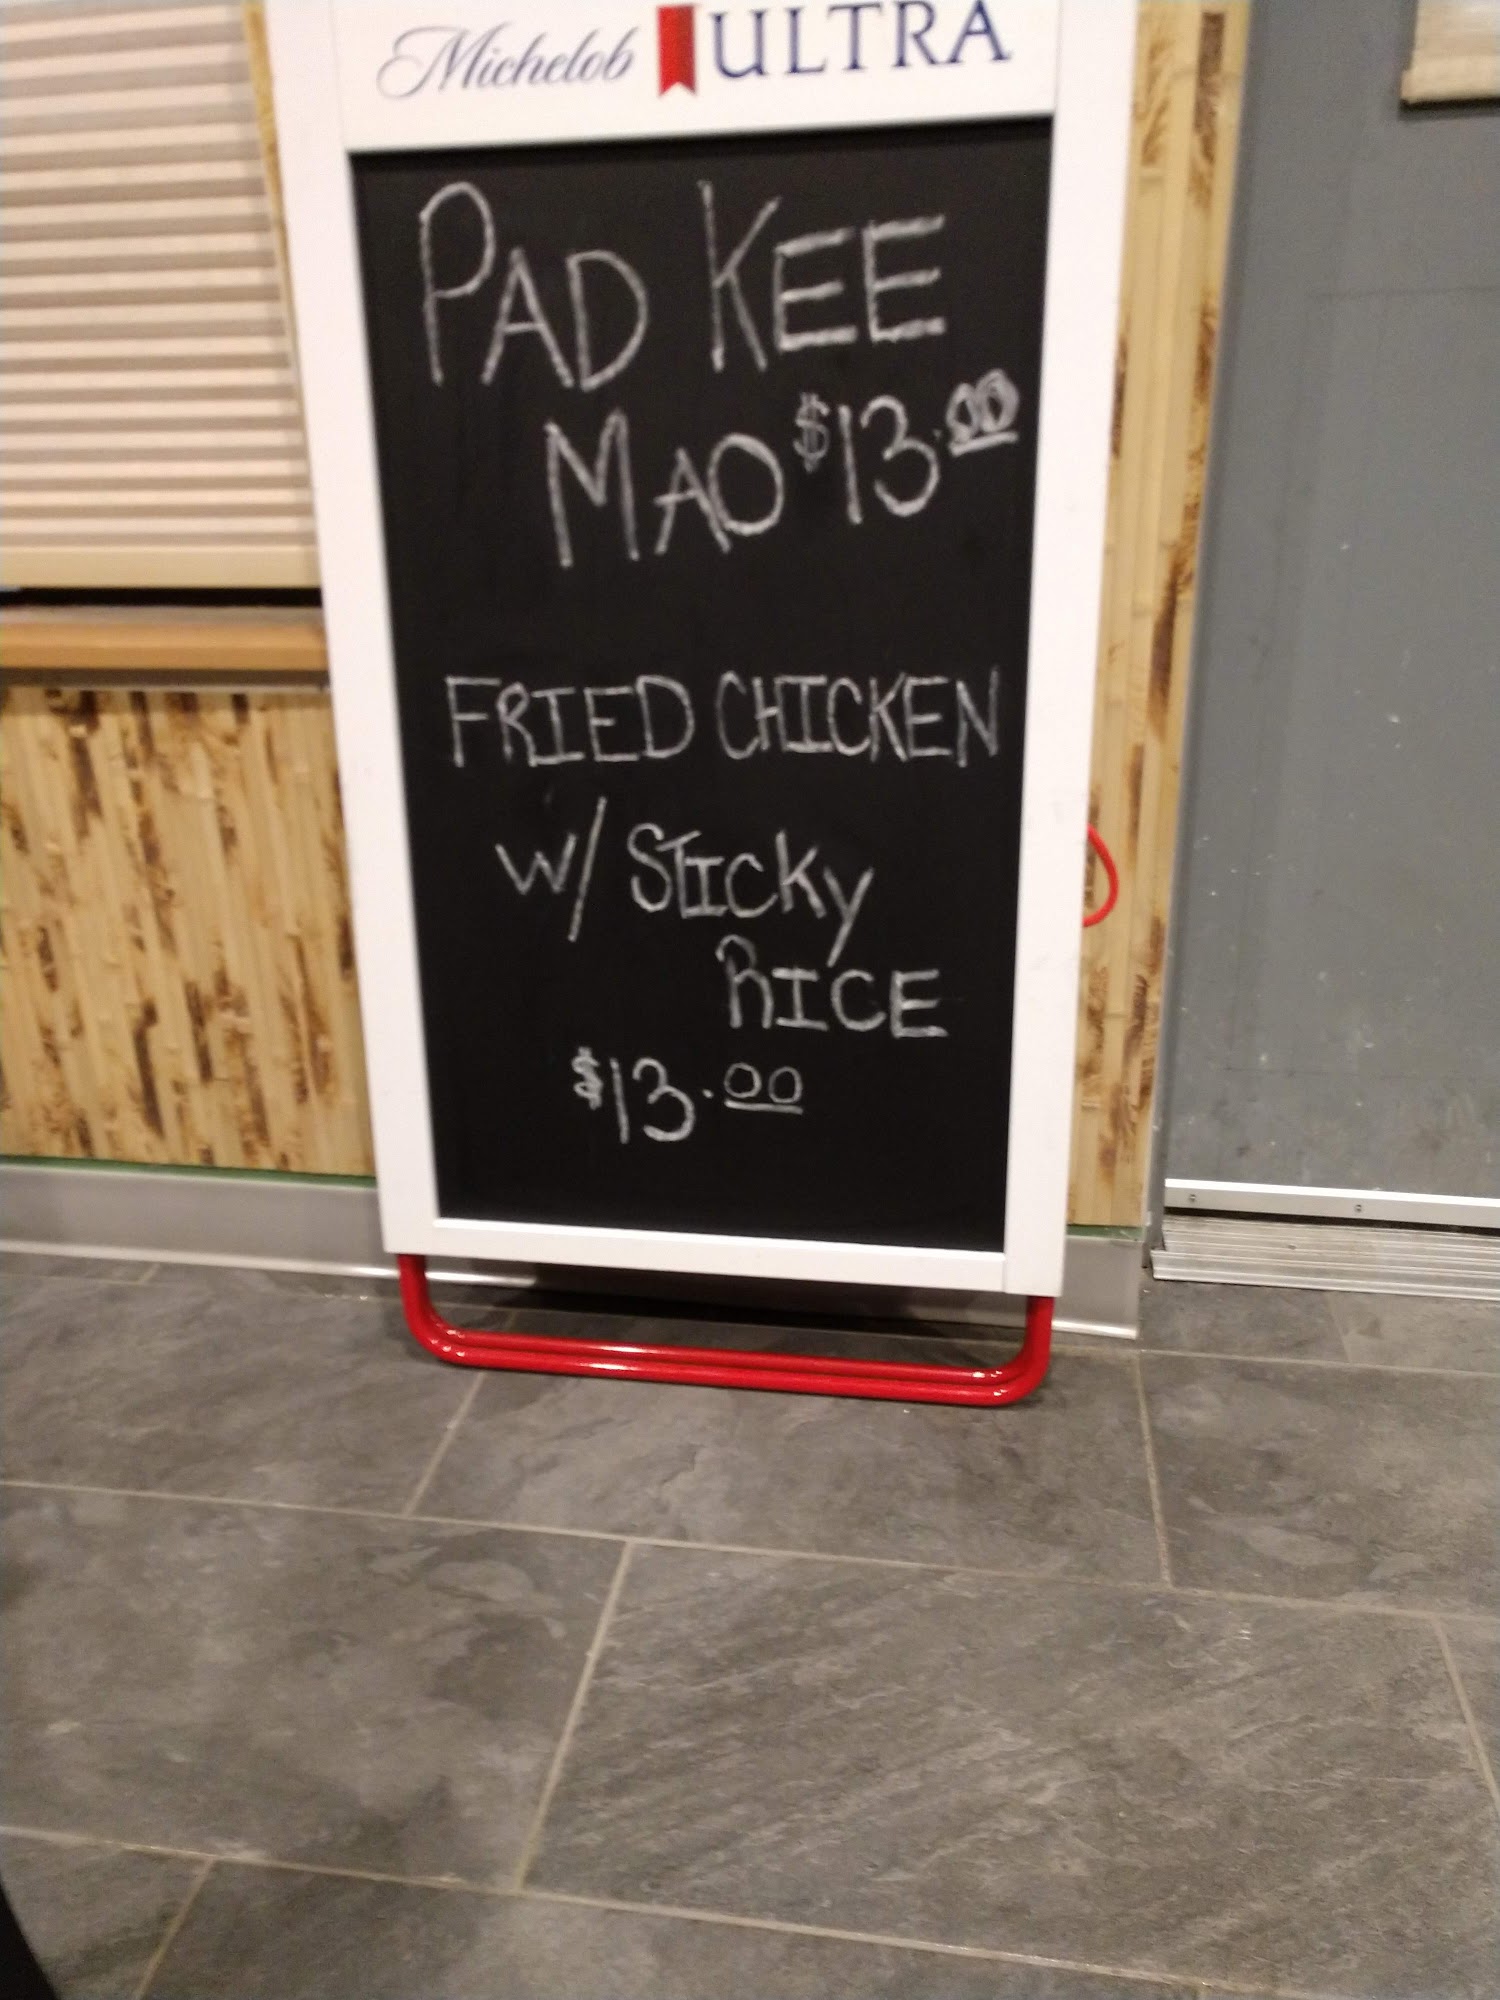 Michelob ULTRA
PAD KEE
MAO $13.00
FRIED CHICKEN
W/ STICKY
RICE
$13.00